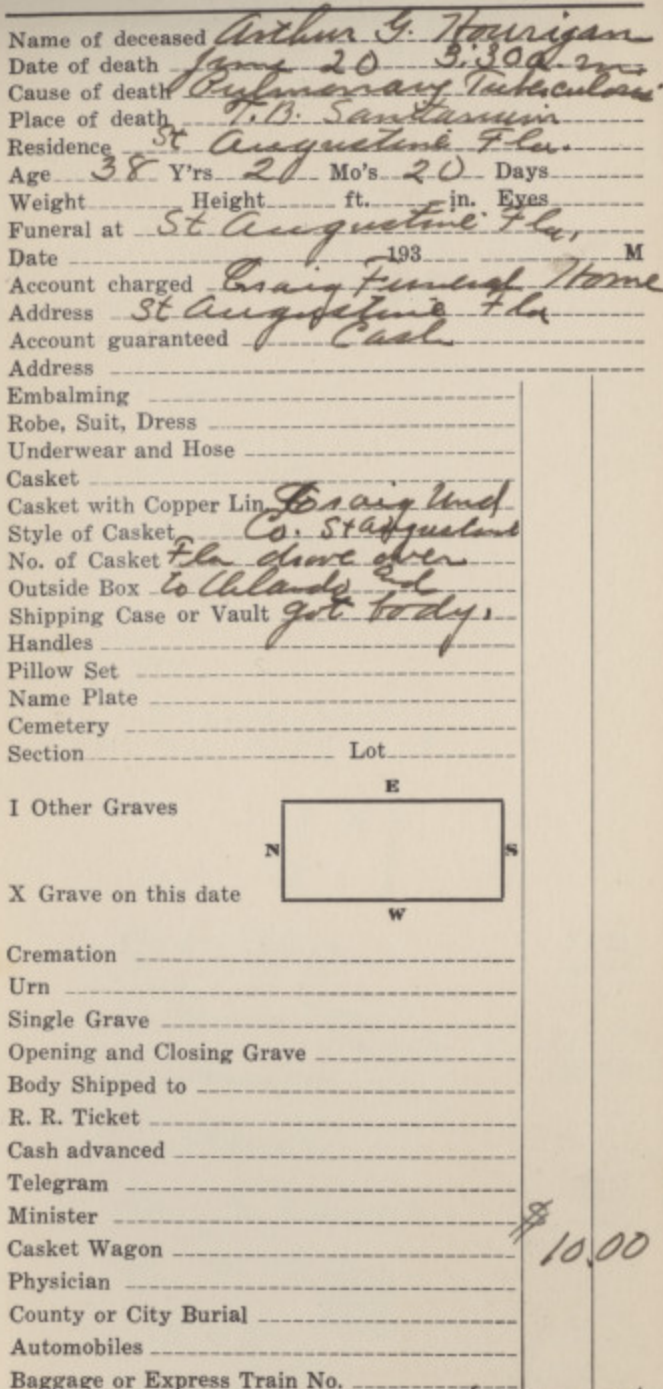 Name of deceased Arthur G. Hourigan
Date of death June 20 3:30 a.m.
Cause of death Pulmonary Tuberculosis
Place of death T.B. Sanitarium
Residence St Augustine Fla.
Age 38 Y'rs 2 Mo's 20 Days
Weight Height ft. in. Eyes
Funeral at St Augustine Fla.
Date 193 M
Account charged Craig Funeral Home
Address St Augustine Fla
Account guaranteed Cash
Address
Embalming
Robe, Suit, Dress
Underwear and Hose
Casket
Casket with Copper Lin Craig Und
Style of Casket Co. St Augustine
No. of Casket Fla drove over
Outside Box to Orlando and
Shipping Case or Vault got body.
Handles
Pillow Set
Name Plate
Cemetery
Section Lot
E
I Other Graves
N S
X Grave on this date
W
Cremation
Urn
Single Grave
Opening and Closing Grave
Body Shipped to
R. R. Ticket
Cash advanced
Telegram
Minister
Casket Wagon $10.00
Physician
County or City Burial
Automobiles
Baggage or Express Train No.